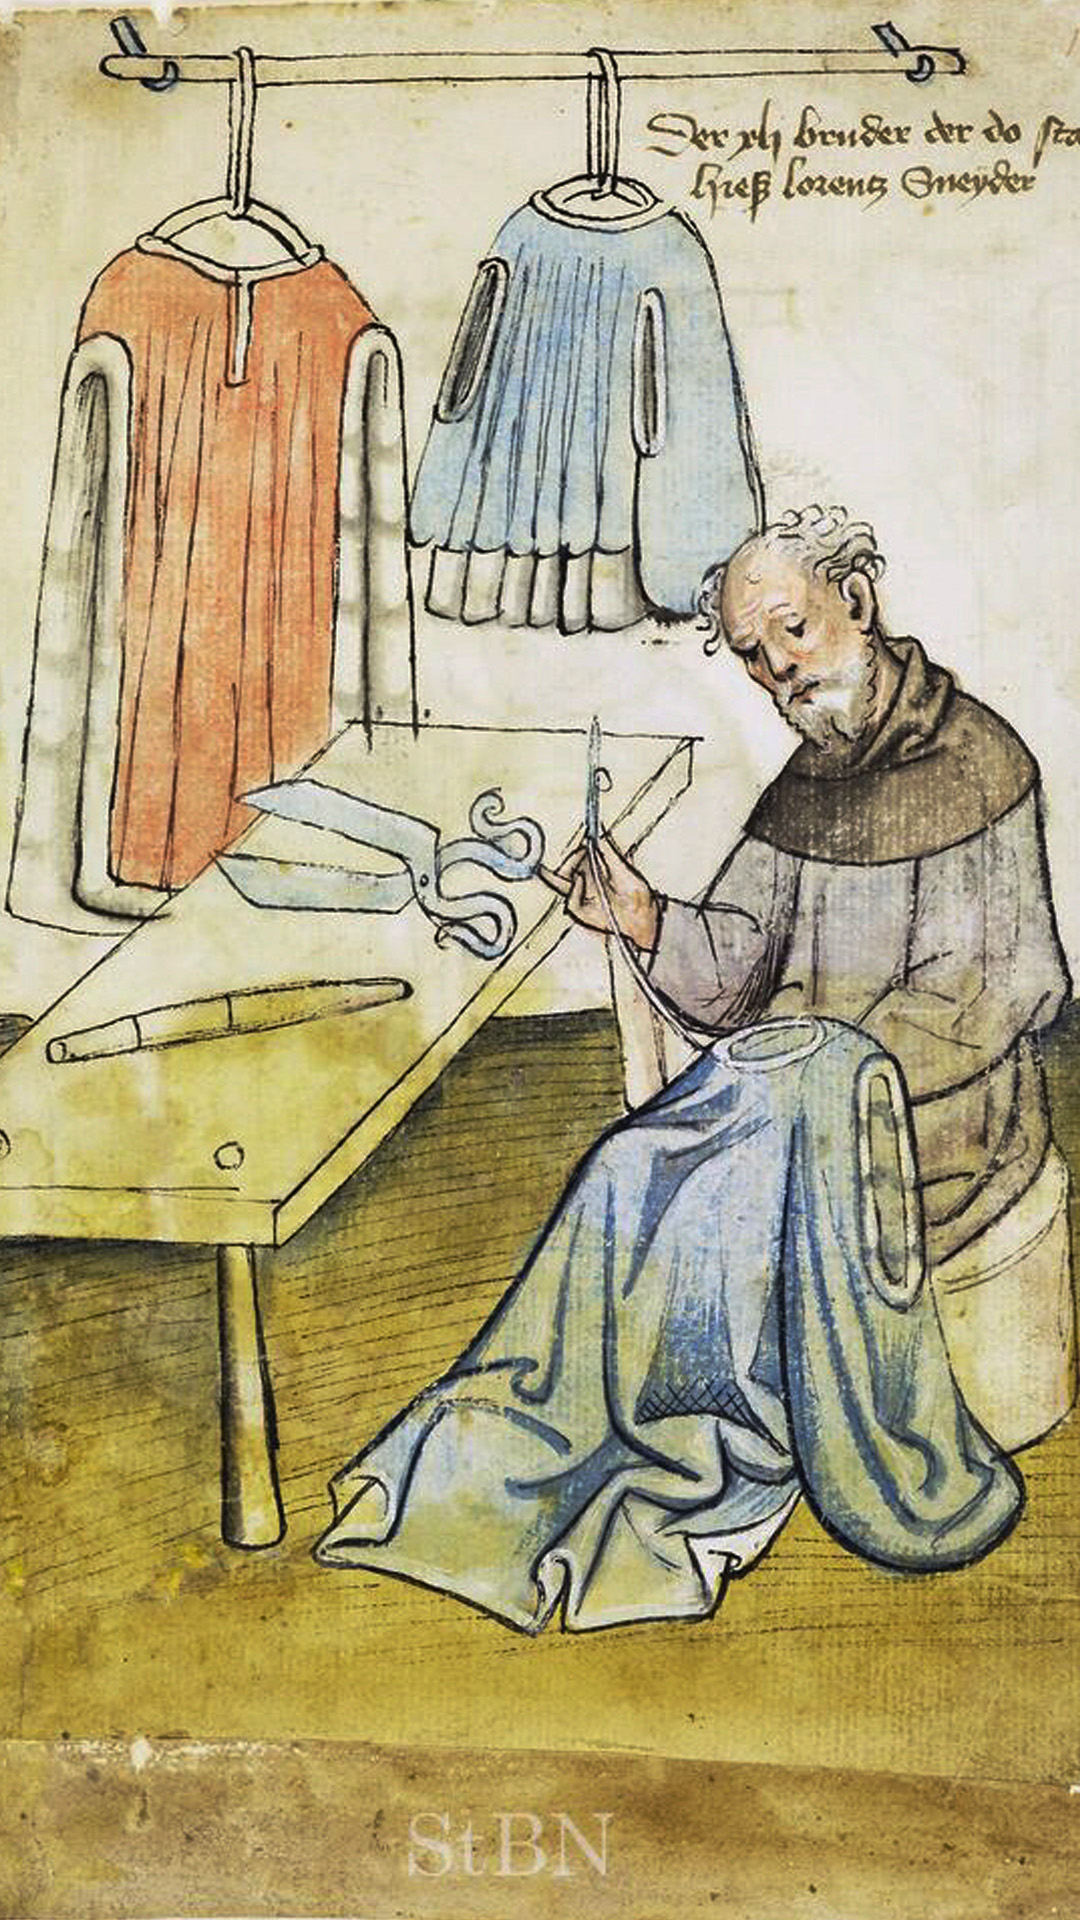 Der xli bruder der do sta
hieß lorentz Sneyder
StBN